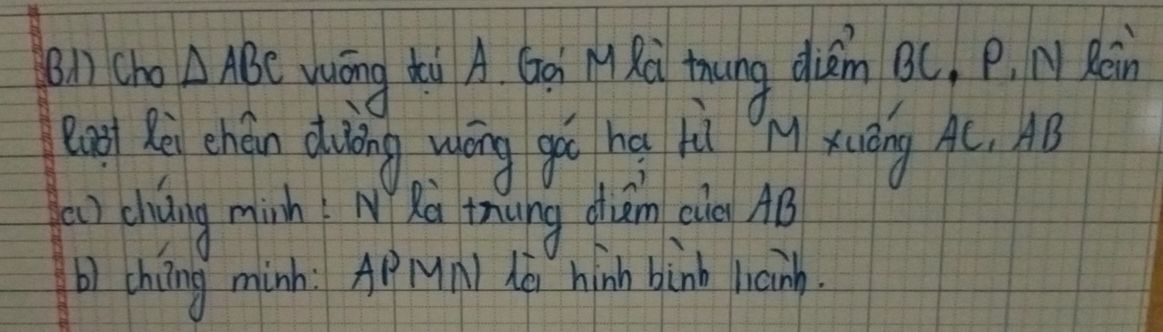 B1) Cho Δ ABC vuông tại A. Gọi M là trung điểm BC, P, N lần
lượt là chân đường vuông góc hạ từ M xuống AC, AB
a) chứng minh: N là trung điểm của AB
b) chứng minh: APMN là hình bình hành.